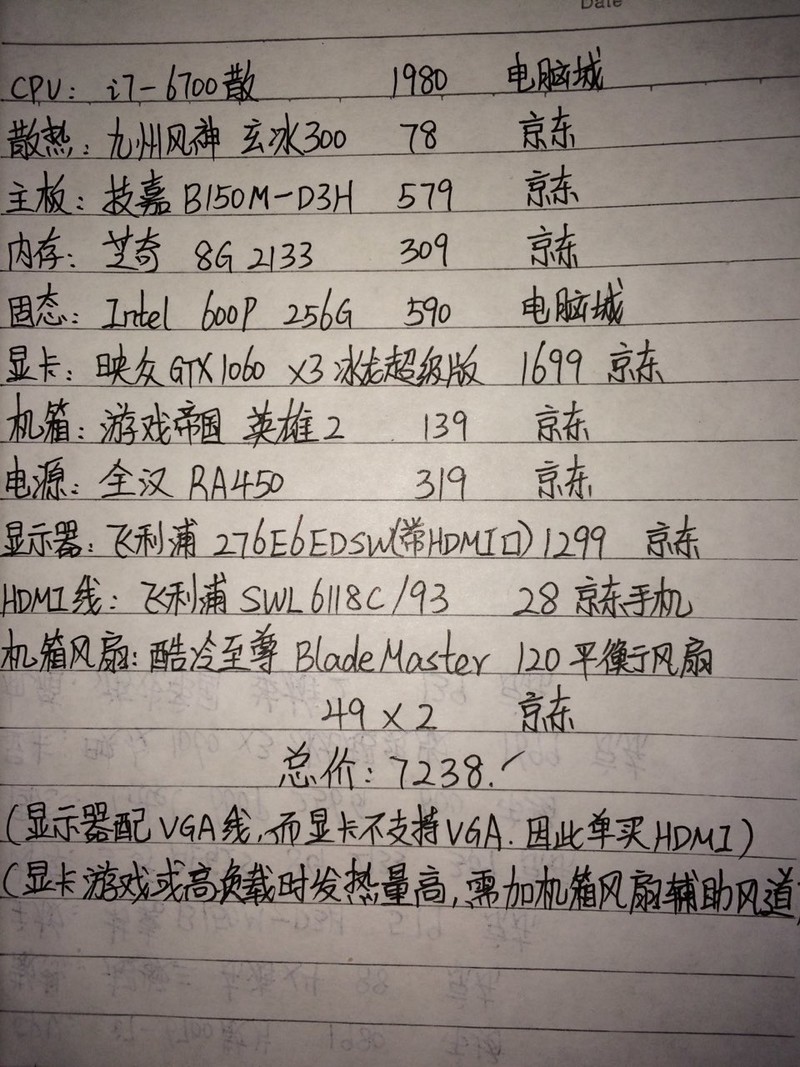 Date
CPU: i7-6700散 1980 电脑城
散热: 九州风神 玄冰300 78 京东
主板: 技嘉 B150M-D3H 579 京东
内存: 芝奇 8G 2133 309 京东
固态: Intel 600P 256G 590 电脑城
显卡: 映众 GTX1060 X3 冰龙超级版 1699 京东
机箱: 游戏帝国 英雄2 139 京东
电源: 全汉 RA450 319 京东
显示器: 飞利浦 276E6EDSW(带HDMI口) 1299 京东
HDMI线: 飞利浦 SWL6118C/93 28 京东手机
机箱风扇: 酷冷至尊 BladeMaster 120 平衡于风扇
49 X 2 京东
总价: 7238.✓
(显示器配VGA线,而显卡不支持VGA.因此单买HDMI)
(显卡游戏或高负载时发热量高,需加机箱风扇辅助风道)